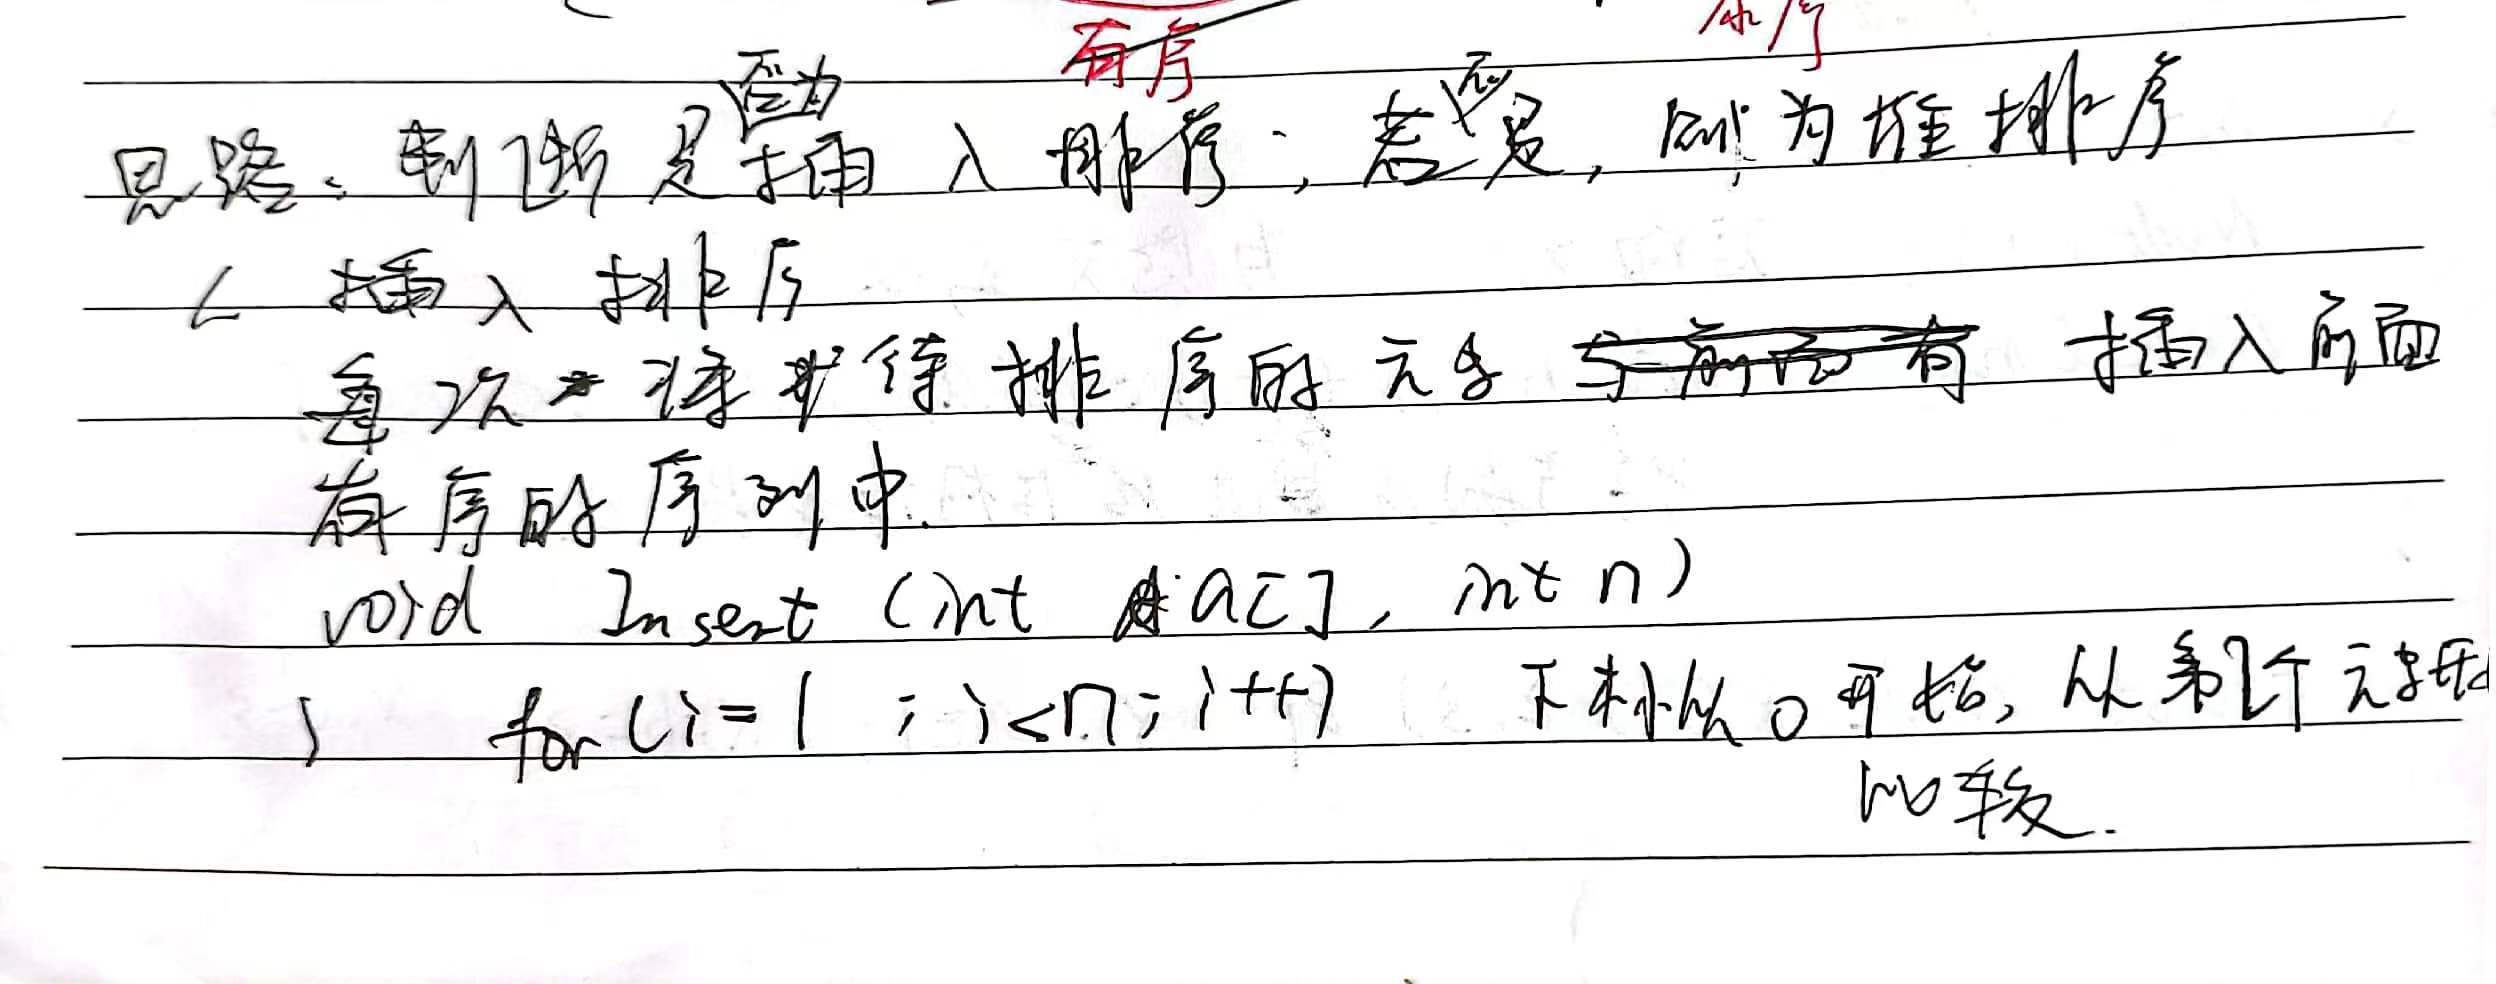 有序
思路：判断是否为插入排序；若不是，则为堆排序
插入排序
每次将待排序的元素插入前面
有序的序列中.
void Insert (int a[], int n)
for (i=1 ; i<n; i++) 下标从0开始, 从第2个元素开
比较.